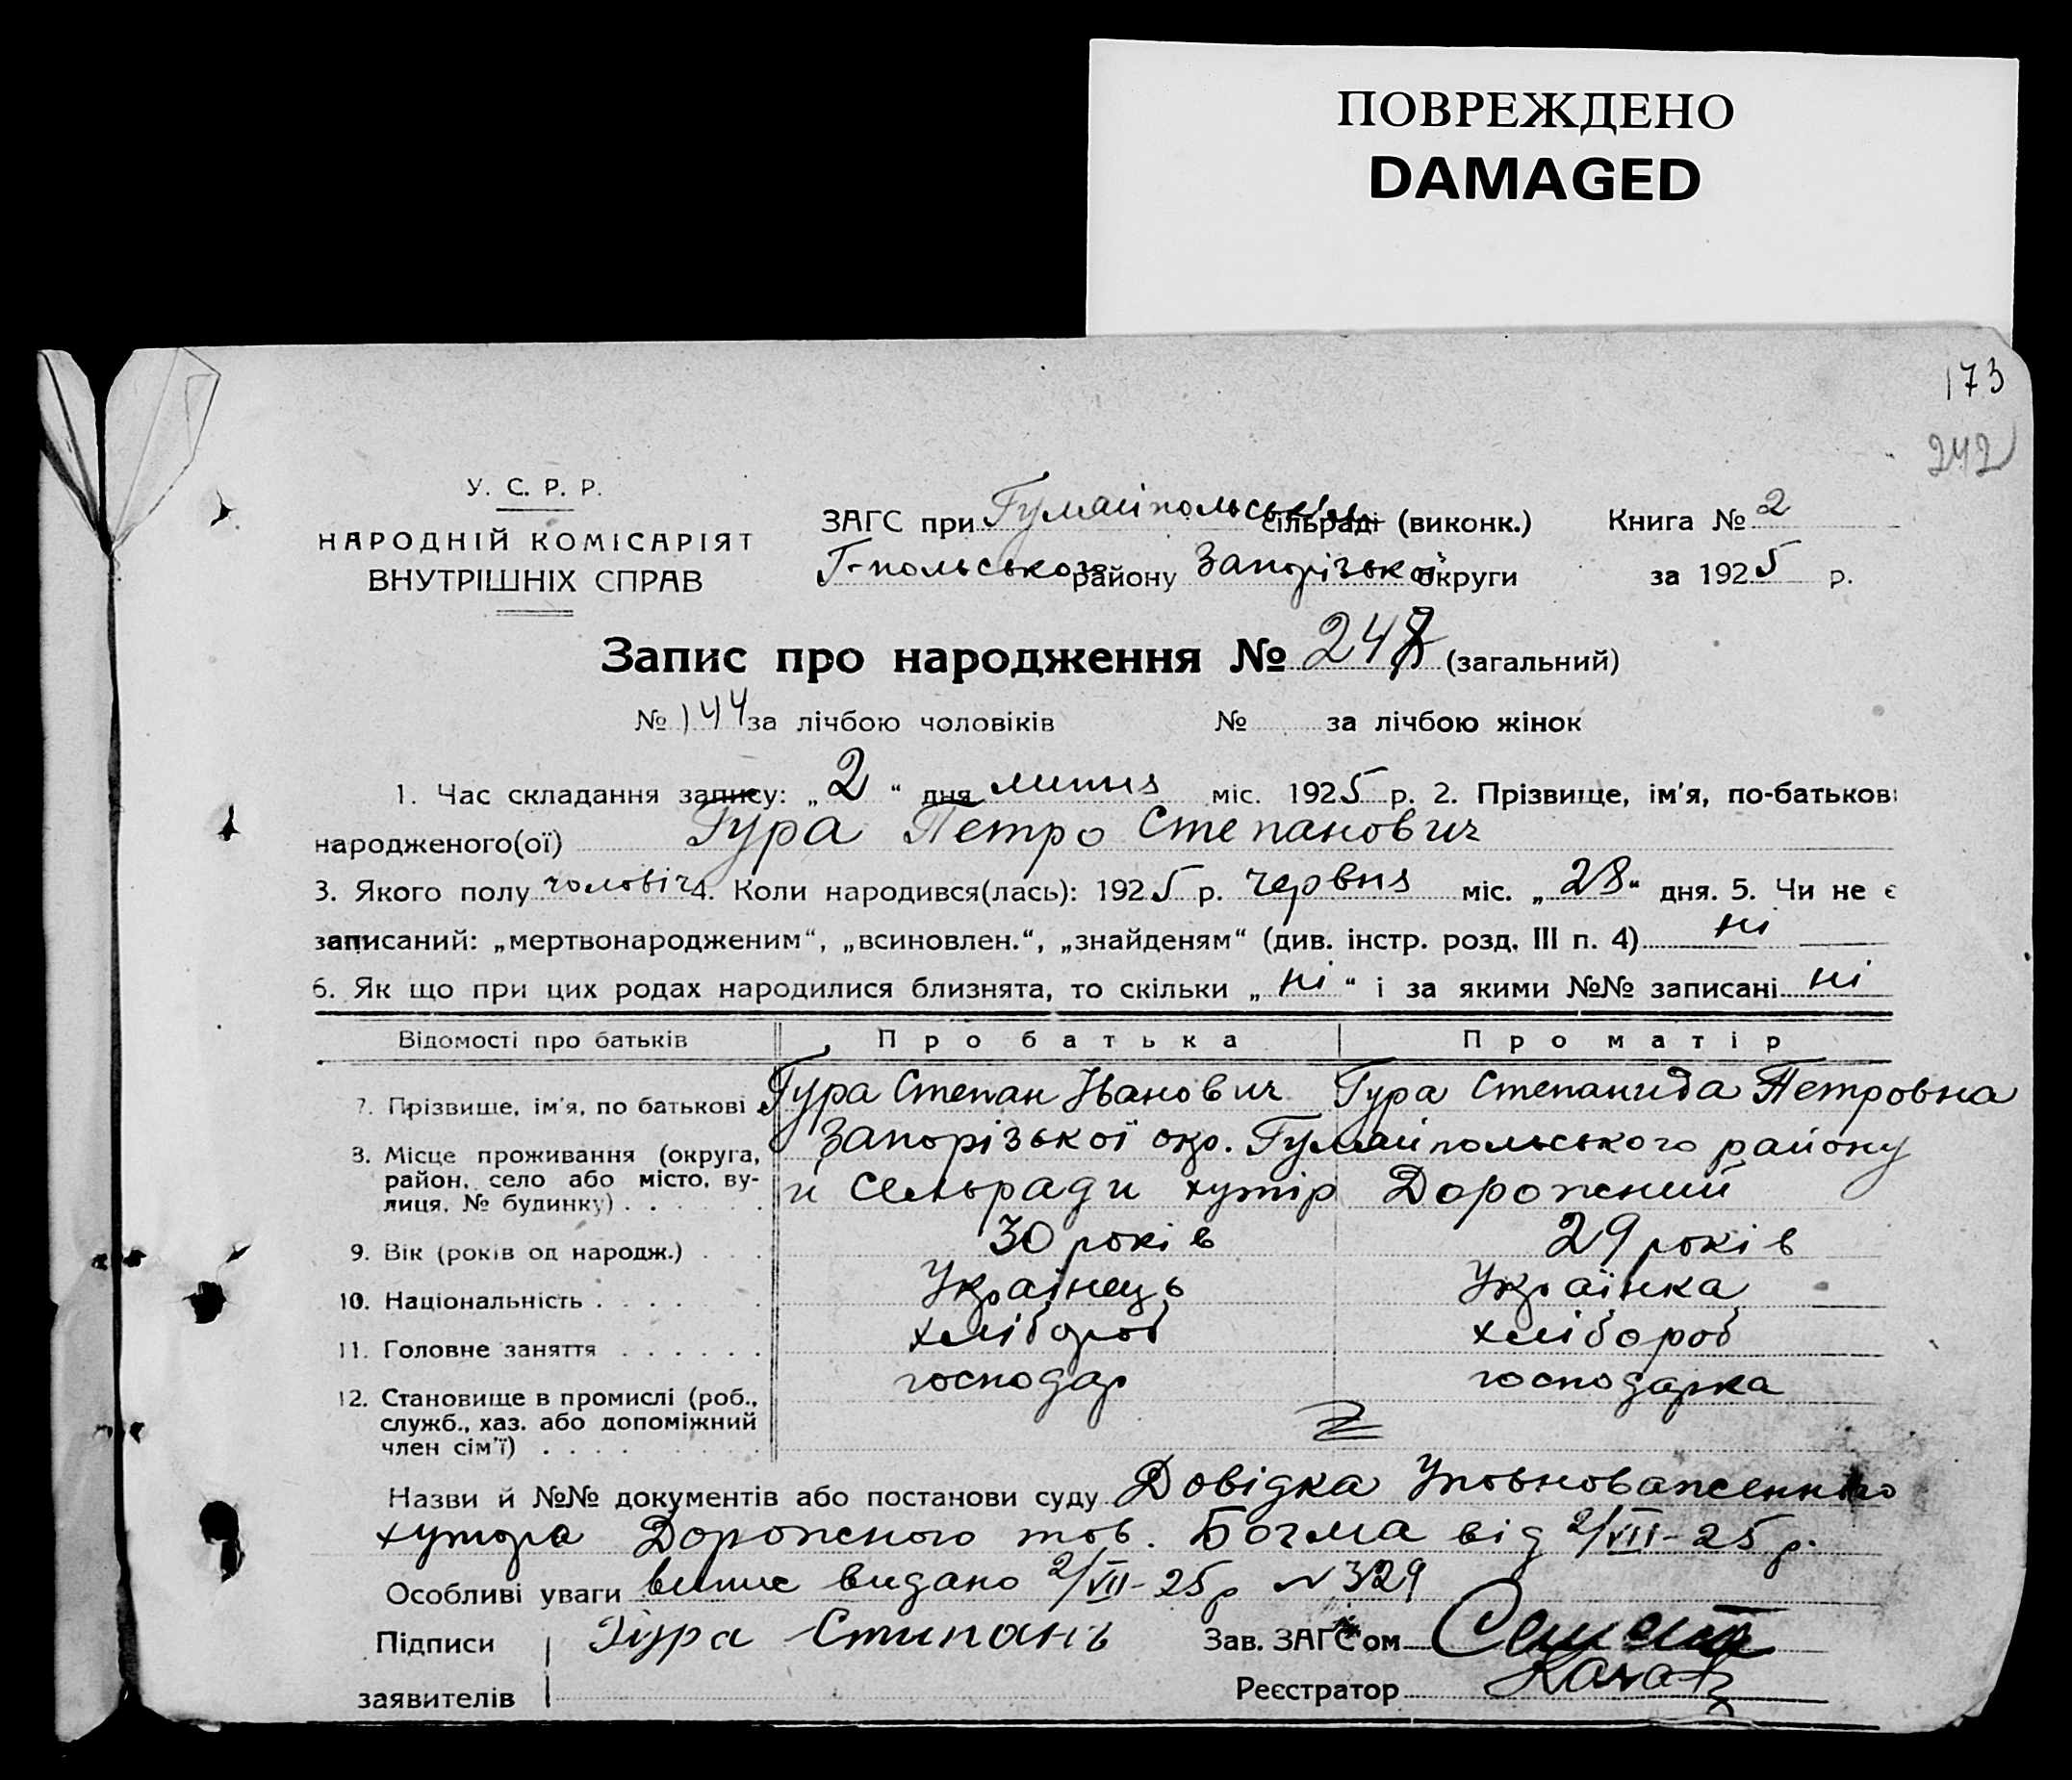 ПОВРЕЖДЕНО
DAMAGED
173
242
У. С. Р. Р.
НАРОДНІЙ КОМІСАРІЯТ
ВНУТРІШНІХ СПРАВ
ЗАГС при Гуляйпольськім сільраді (виконк.) Книга № 2
Г-польського району Запорізької округи за 1925 р.
Запис про народження № 247 (загальний)
№ 144 за лічбою чоловіків № за лічбою жінок
1. Час складання запису: „2“ дня липня міс. 1925 р. 2. Прізвище, ім'я, по-батькові
народженого(ої) Гура Петро Степанович
3. Якого полу чоловіч 4. Коли народився(лась): 1925 р. червня міс. „28“ дня. 5. Чи не є
записаний: „мертвонародженим“, „всиновлен.“, „знайденям“ (див. інстр. розд. III п. 4) ні
6. Як що при цих родах народилися близнята, то скільки „ні“ і за якими №№ записані ні
Відомості про батьків Про батька Про матір
7. Прізвище, ім'я, по батькові Гура Степан Іванович Гура Степанида Петровна
8. Місце проживання (округа, район, село або місто, вулиця, № будинку) Запорізької окр. Гуляйпольського району
и Сельради хутір Дорожний
9. Вік (років од народж.) 30 років 29 років
10. Національність Українець Українка
11. Головне заняття хлібороб хлібороб
12. Становище в промислі (роб., служб., хаз. або допоміжний член сім'ї) господар господарка
Назви й №№ документів або постанови суду Довідка Уповноваженного
хутора Дорожного тов. Богма від 2/VII-25 р.
Особливі уваги випис видано 2/VII-25 р №329
Підписи Гура Стипань Зав. ЗАГС'ом
заявителів Реєстратор